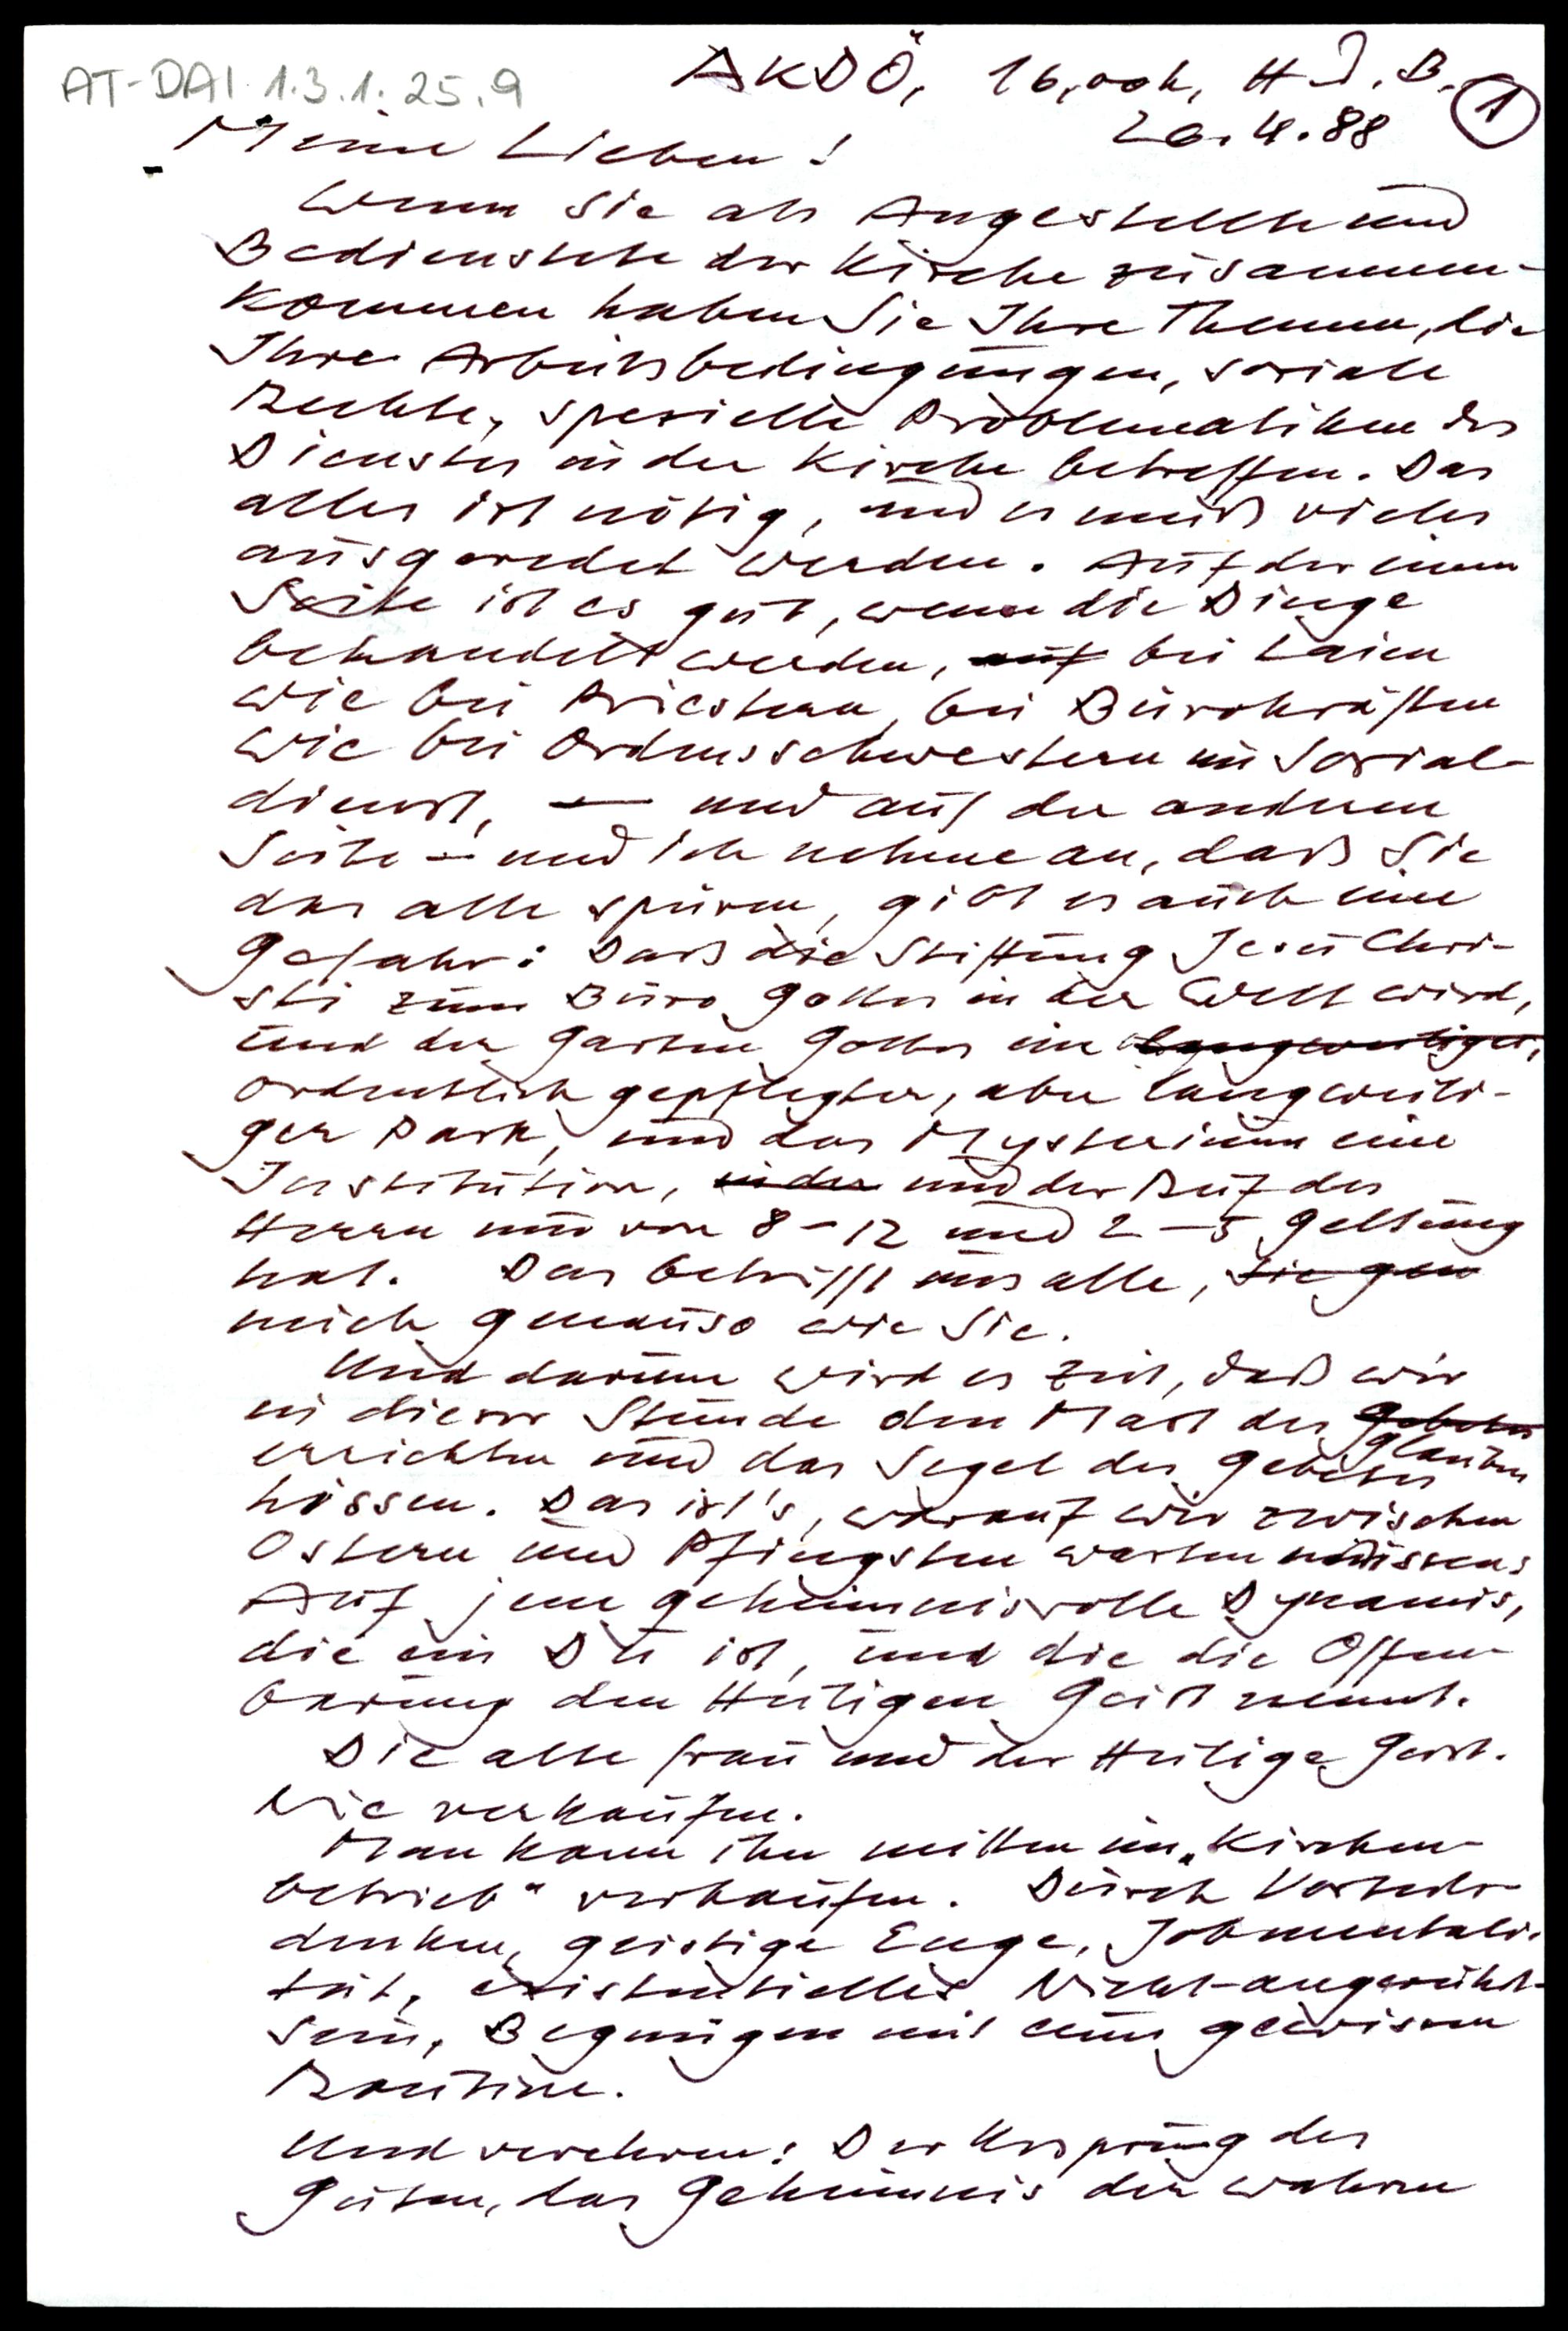 AT-DAI 1.3.1.25.9
AKDÖ, 16,00h, H J. B. 1
26.4.88
Meine Lieben!
Wenn Sie als Angestellte und
Bedienstete der Kirche zusammen-
kommen haben Sie Ihre Themen, die
Ihre Arbeitsbedingungen, soziale
Rechte, spezielle Problematiken des
Dienstes in der Kirche betreffen. Das
alles ist nötig, und es muß vieles
ausgeredet werden. Auf der einen
Seite ist es gut, wenn die Dinge
behandelt werden, auf bei Laien
wie bei Priestern, bei Bürokräften
wie bei Ordensschwestern im Sozial-
dienst, — und auf der anderen
Seite – und ich nehme an, daß Sie
das alle spüren, gibt es auch eine
Gefahr: Daß die Stiftung Jesu Chri-
sti zum Büro Gottes in der Welt wird,
und der Garten Gottes ein langweiliger,
ordentlich gepflegter, aber langweili-
ger Park, und das Mysterium eine
Institution, in der und der Ruf des
Herrn nur von 8 – 12 und 2 – 5 Geltung
hat. Das betrifft uns alle, Sie gen
mich genauso wie Sie.
Und darum wird es Zeit, daß wir
in dieser Stunde den Mast des Gebetes
Glaubens
errichten und das Segel des Gebetes
hissen. Das ist's, worauf wir zwischen
Ostern und Pfingsten warten müssen:
Auf jene geheimnisvolle Dynamis,
die ein Du ist, und die die Offen-
barung den Heiligen Geist nennt.
Die alte Frau und der Heilige Geist.
Nie verkaufen.
Man kann ihn mitten im „Kirchen-
betrieb" verkaufen. Durch Vorteils-
denken, geistige Enge, Jobmentali-
tät, existentielles Nicht-angerührt-
sein, Begnügen mit einer gewissen
Routine.
Und verehren: Der Ursprung des
Guten, das Geheimnis der wahren